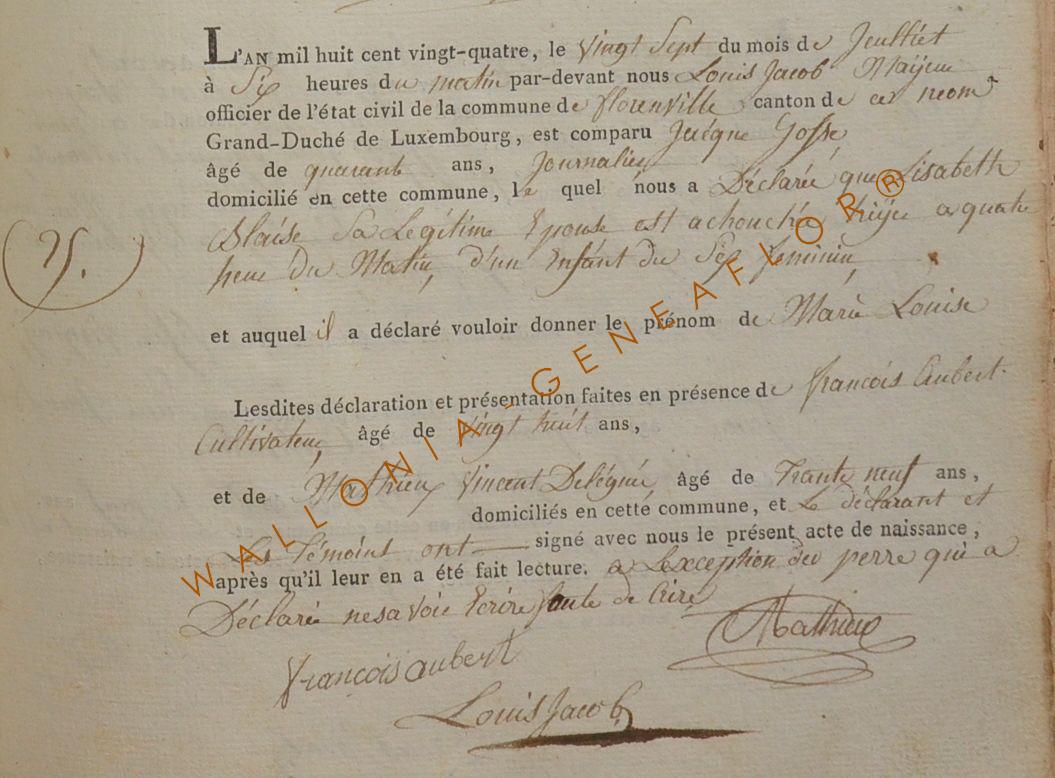 L'AN mil huit cent vingt-quatre, le vingt Sept du mois de Jeulliet
à Six heures du matin par-devant nous Louis Jacob Maijeur
officier de l'état civil de la commune de florenville canton de ce neom
Grand-Duché de Luxembourg, est comparu Jacque Gosse
âgé de quarant ans, Journalier
domicilié en cette commune, le quel nous a Déclarée que Lisabeth
Blaise Sa Légitime Epouse est achouchée hiÿer a quatre
heur du Matin, d'un Enfant du Sex feminin,
25.
et auquel il a déclaré vouloir donner le prénom de Marie Louise
Lesdites déclaration et présentation faites en présence de françois Aubert
Cultivateur, âgé de vingt huit ans,
et de Mathieu Vincent Deléguée, âgé de Trante neuf ans,
domiciliés en cette commune, et Le déclarant et
Les Témoint ont signé avec nous le présent acte de naissance,
après qu'il leur en a été fait lecture. a Lexception du perre qui a
Déclarée ne savoie Ecrire
françois aubert
Mathieu
Louis Jacob
WALLONIA-GENEAFLOR®